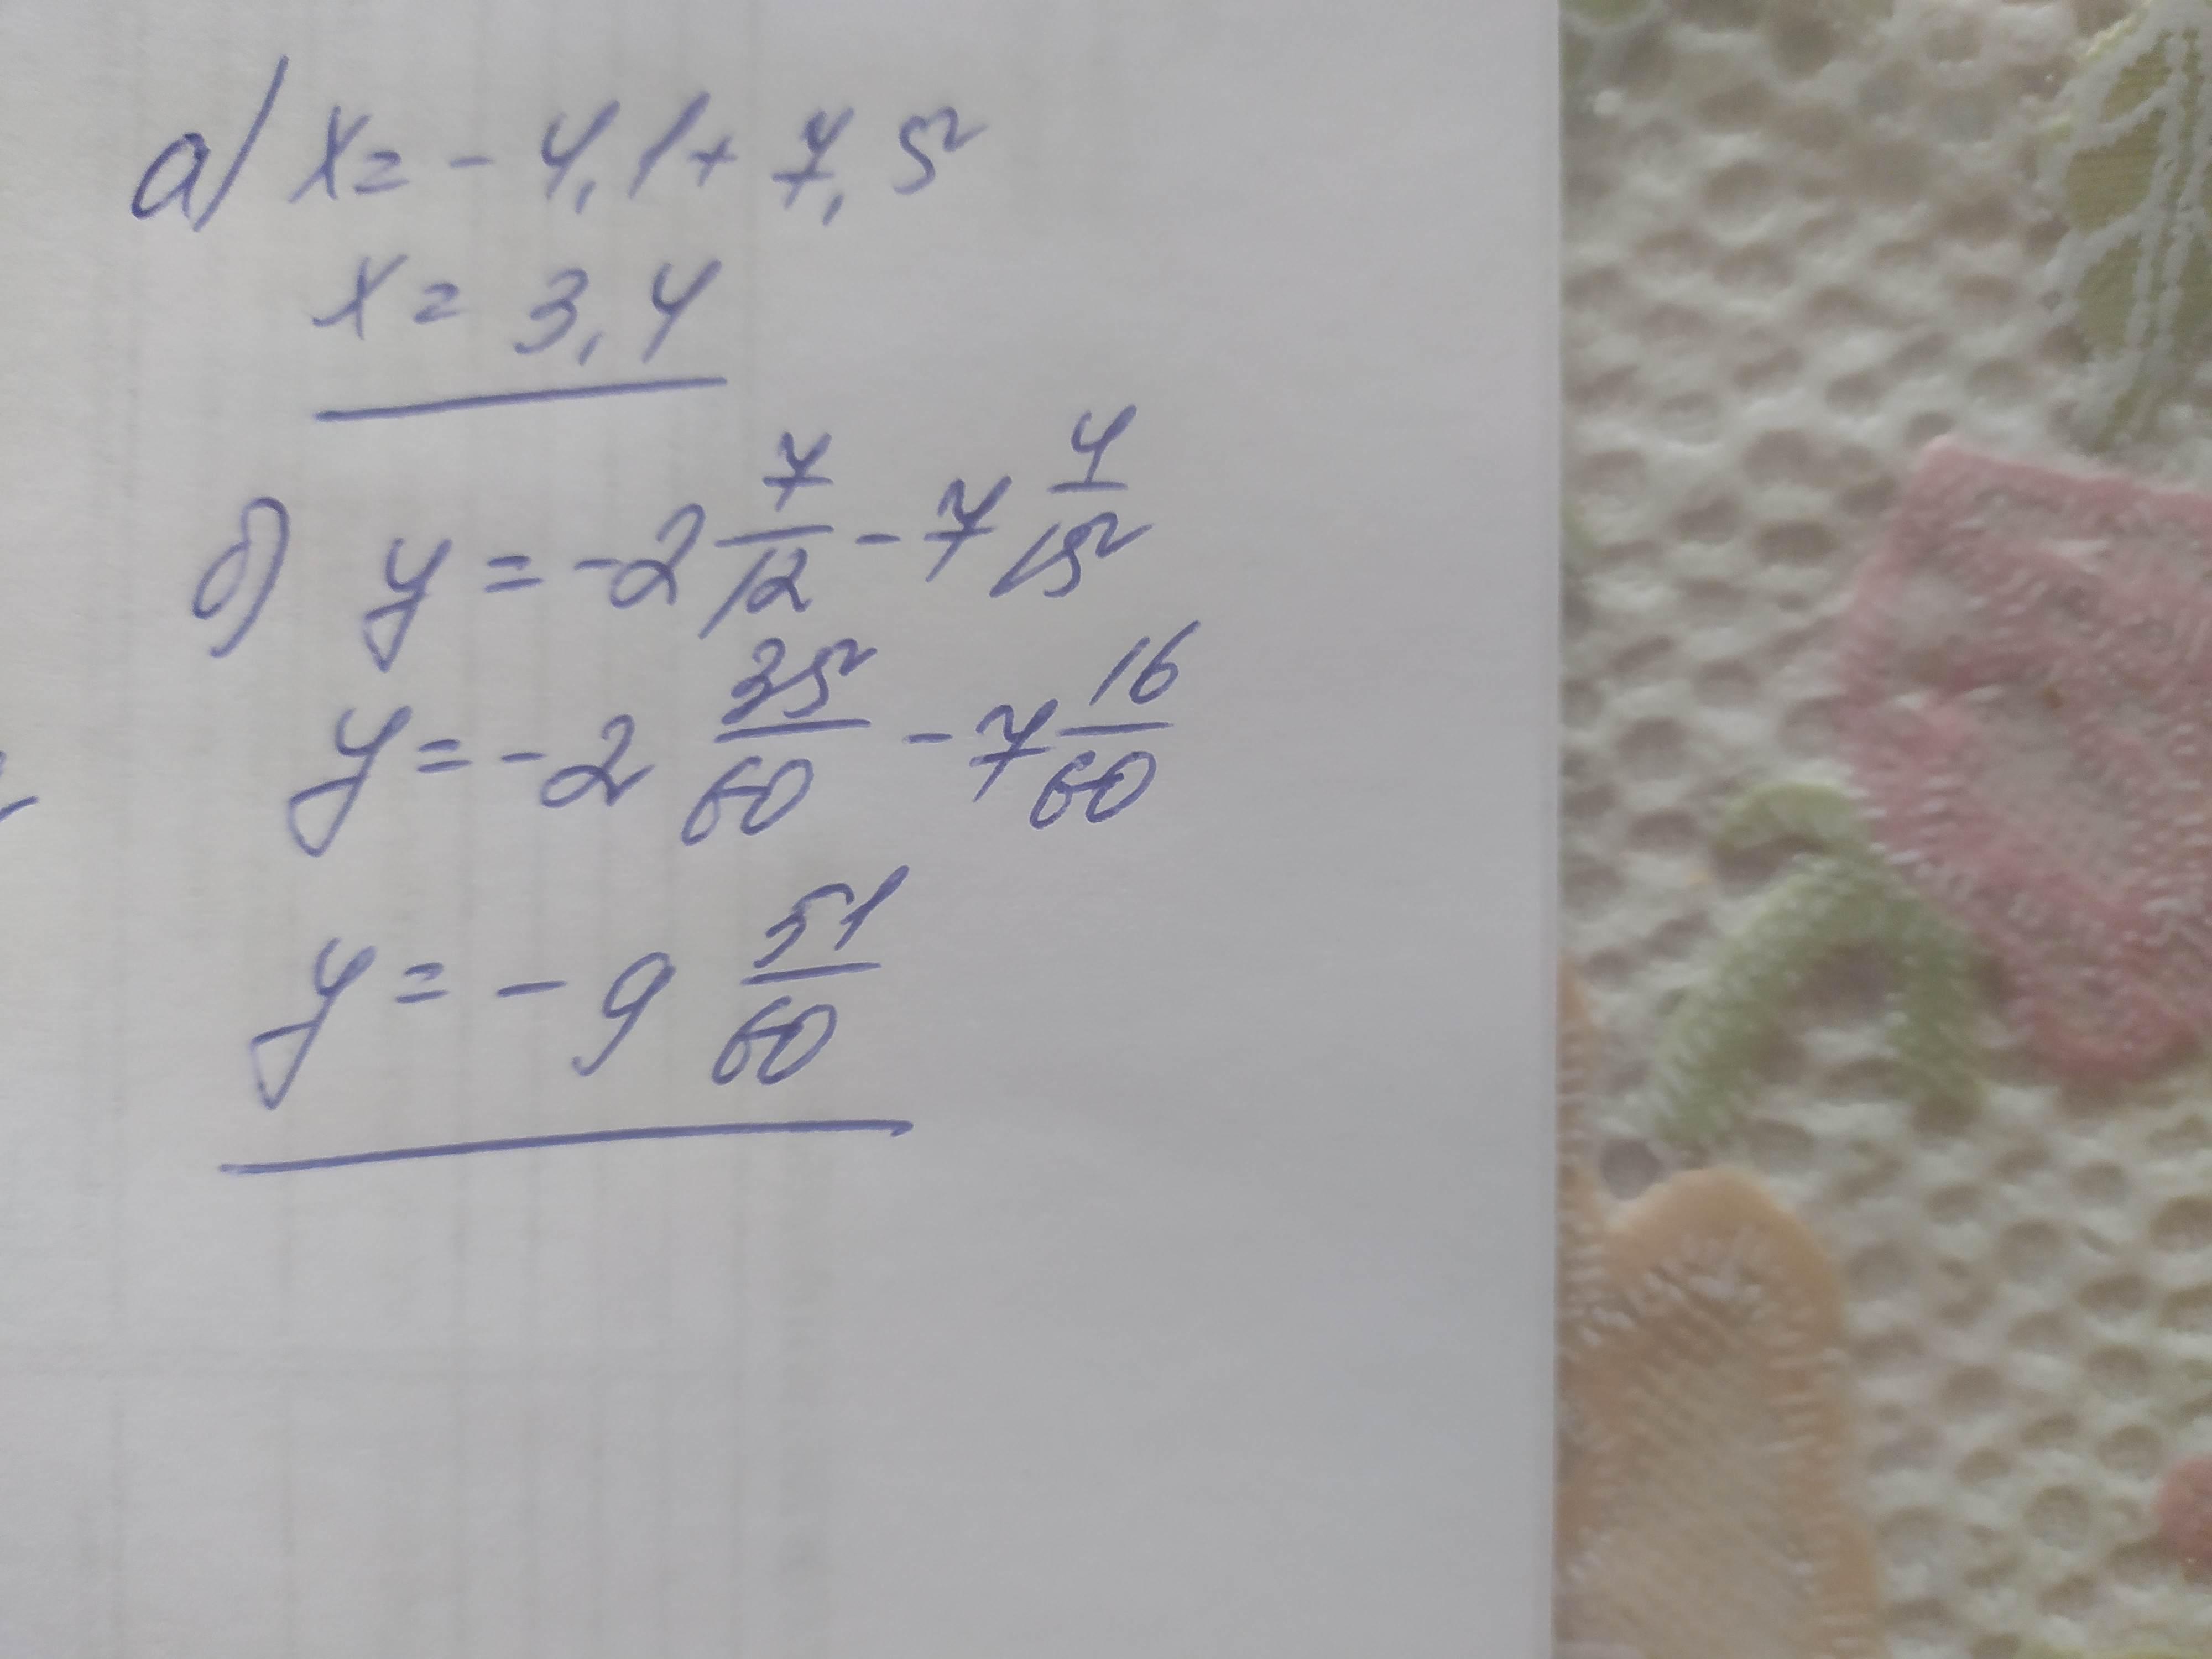 а) x = - 4,1 + 7,5
x = 3,4
б) y = -2 7/12 - 7 4/15
y = -2 35/60 - 7 16/60
y = - 9 51/60